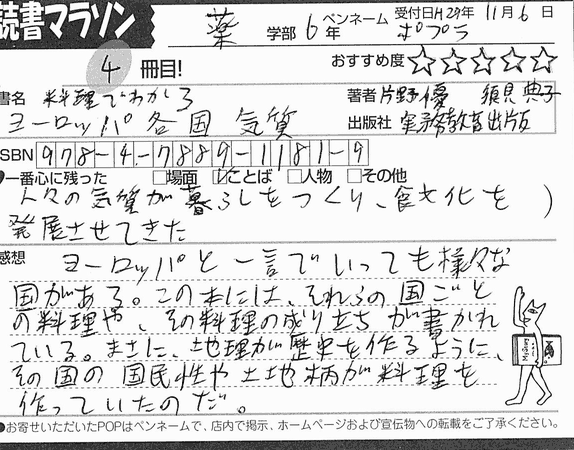 読書マラソン
薬 学部 6年 ペンネーム ポプラ 受付日H29年 11月 6日
4 冊目!
おすすめ度☆☆☆☆☆
書名 料理でわかる
ヨーロッパ各国気質
著者 片野優 須貝典子
出版社 実務教育出版
ISBN 978-4-7889-1181-9
●一番心に残った □場面 ☑ことば □人物 □その他
人々の気質が暮らしをつくり、食文化を
発展させてきた
感想 ヨーロッパと一言でいっても様々な
国がある。この本には、それらの国ごと
の料理や、その料理の成り立ちが書かれ
ている。まさに、地理が歴史を作るように、
その国の国民性や土地柄が料理を
作っていたのだ。
●お寄せいただいたPOPはペンネームで、店内で掲示、ホームページおよび宣伝物への転載をご了承ください。